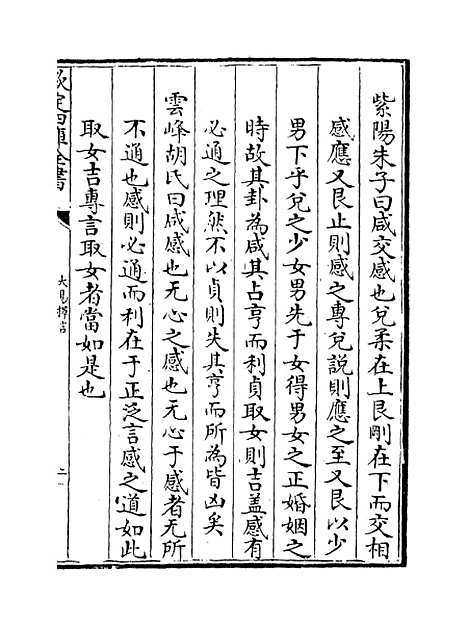 紫陽朱子曰咸交感也兌柔在上艮剛在下而交相
感應又艮止則感之專兌說則應之至又艮以少
男下乎兌之少女男先于女得男女之正婚姻之
時故其卦為咸其占亨而利貞取女則吉盖感有
必通之理然不以貞則失其亨而所為皆凶矣
雲峰胡氏曰咸感也无心之感也无心于感者无所
不通也感則必通而利在于正泛言感之道如此
取女吉專言取女者當如是也
欽定四庫全書
大易擇言
二